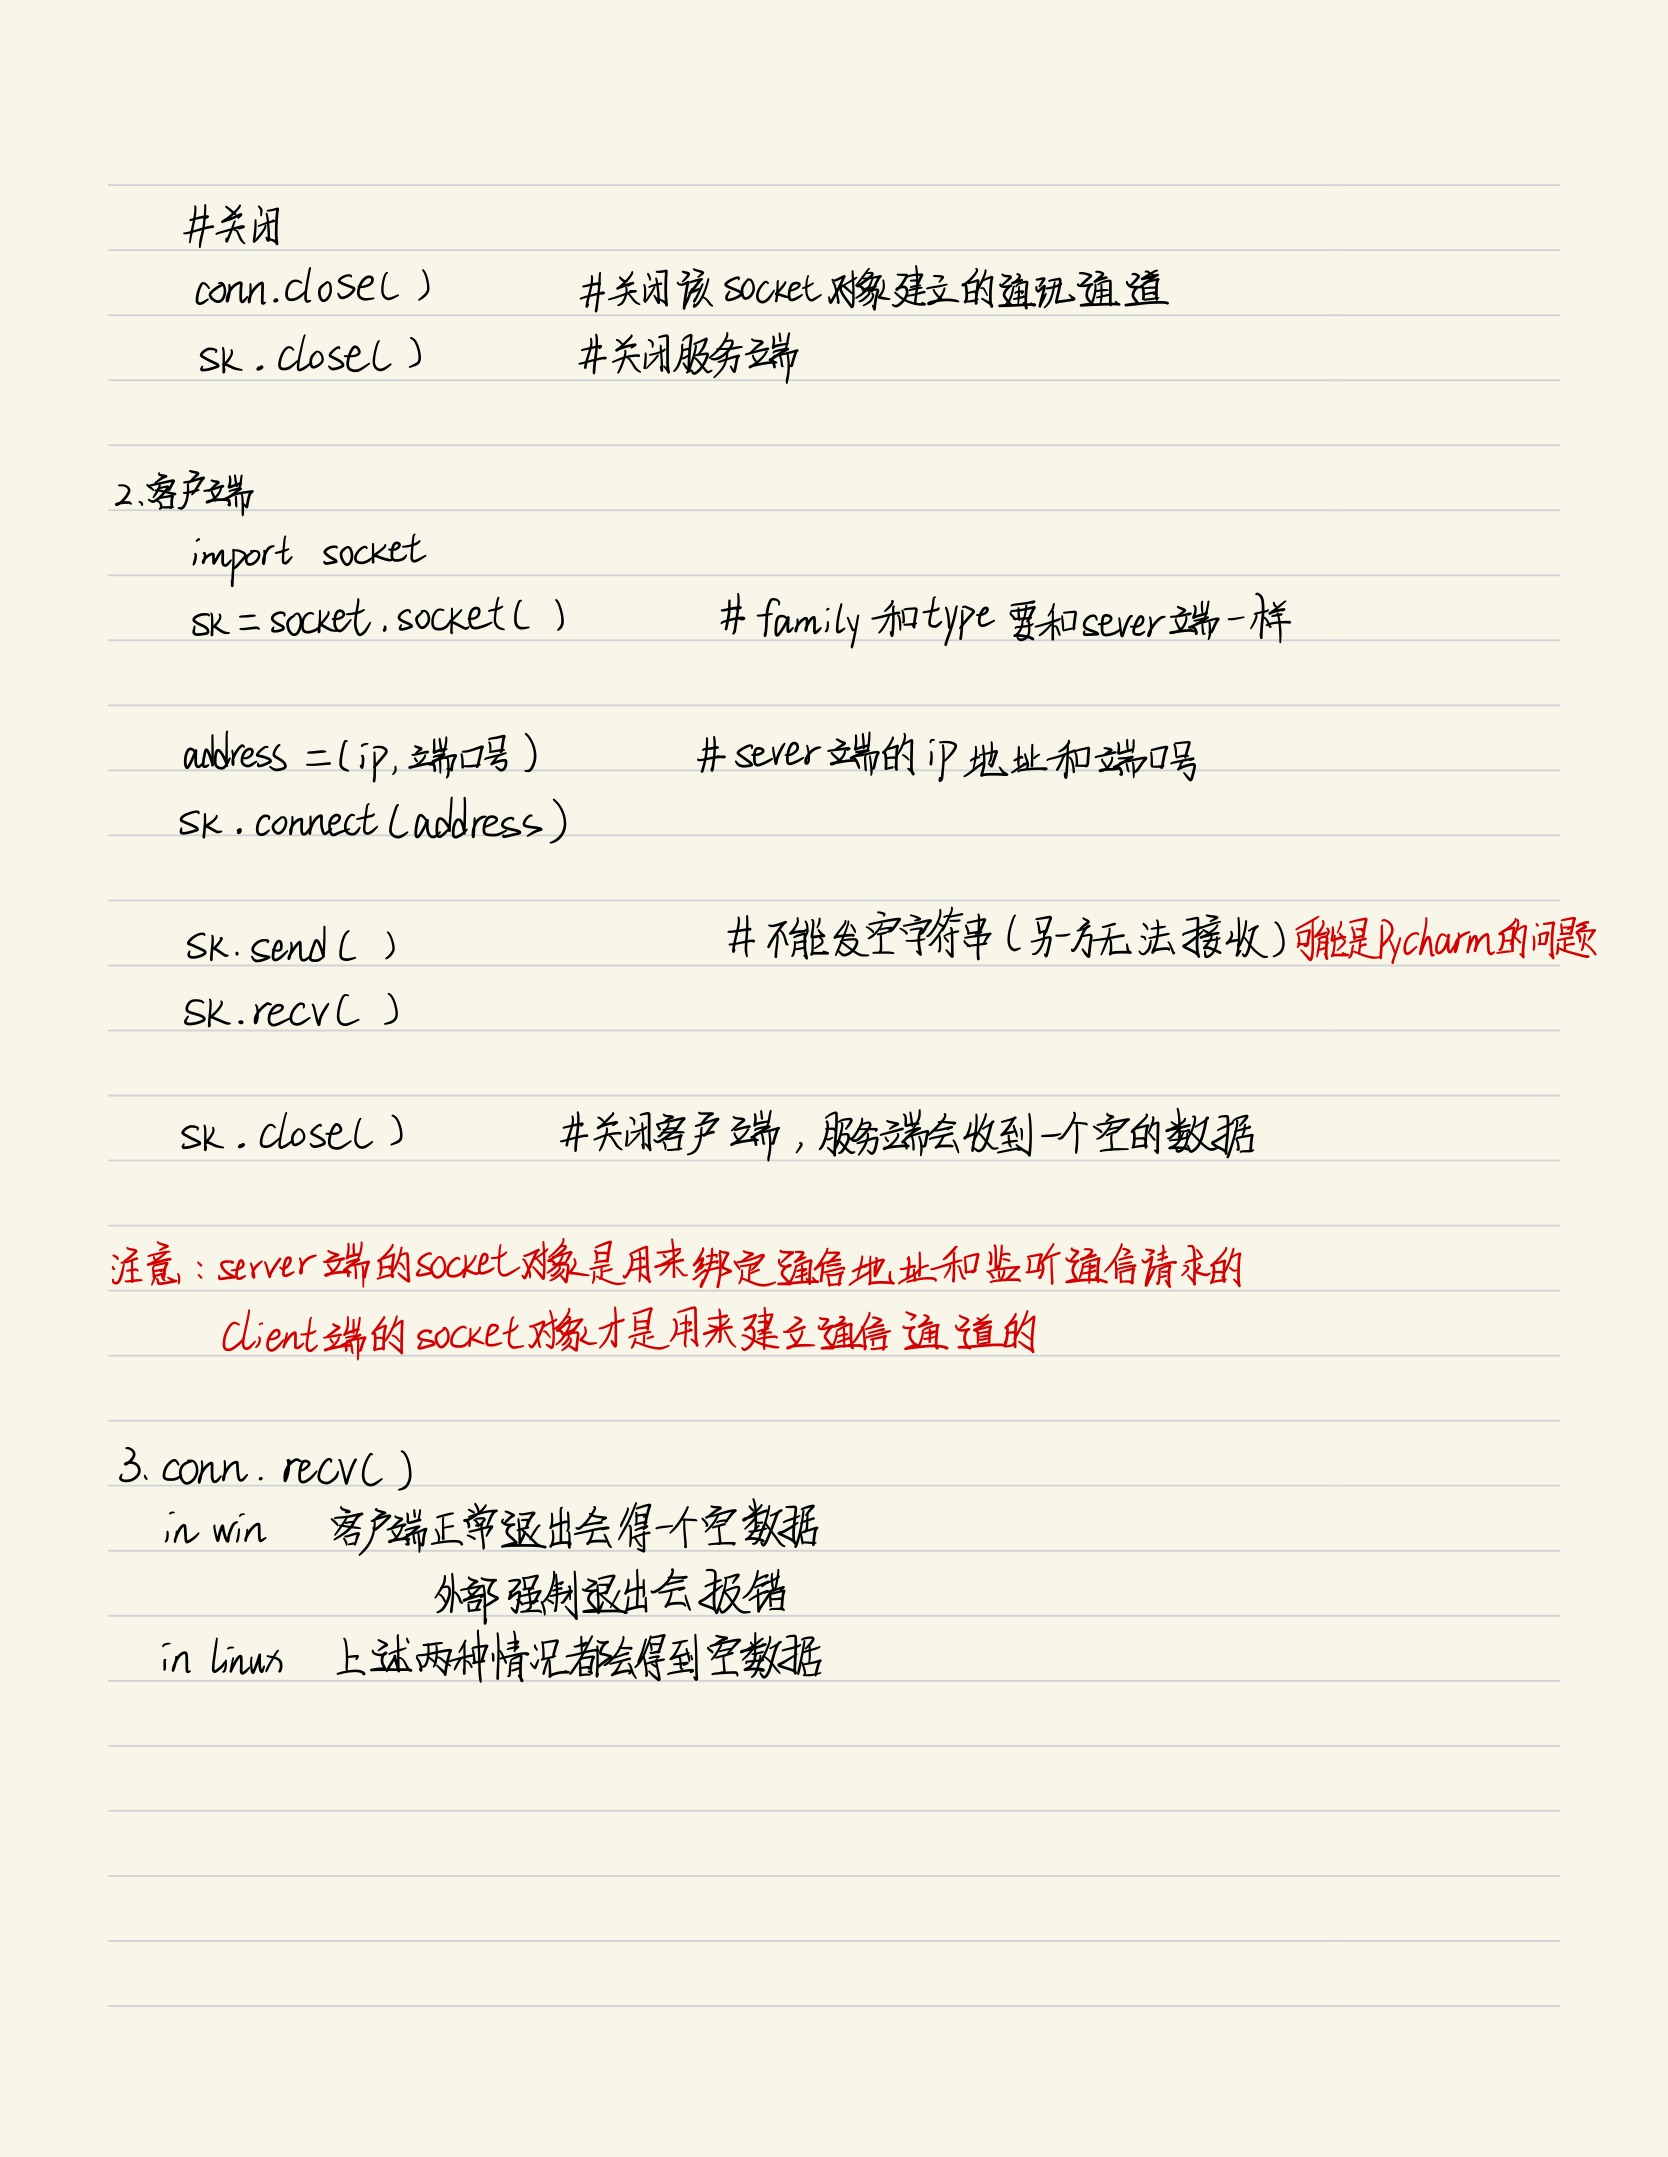 #关闭
conn.close( ) #关闭该socket对象建立的通讯通道
sk.close( ) #关闭服务端
2.客户端
import socket
sk=socket.socket( ) # family和type要和sever端一样
address=(ip,端口号) # sever端的ip地址和端口号
sk.connect(address)
sk.send( ) # 不能发空字符串(另一方无法接收)可能是Pycharm的问题
sk.recv( )
sk.close( ) #关闭客户端,服务端会收到一个空的数据
注意:server端的socket对象是用来绑定通信地址和监听通信请求的
Client端的socket对象才是用来建立通信通道的
3.conn.recv( )
in win 客户端正常退出会得一个空数据
外部强制退出会报错
in linux 上述两种情况都会得到空数据